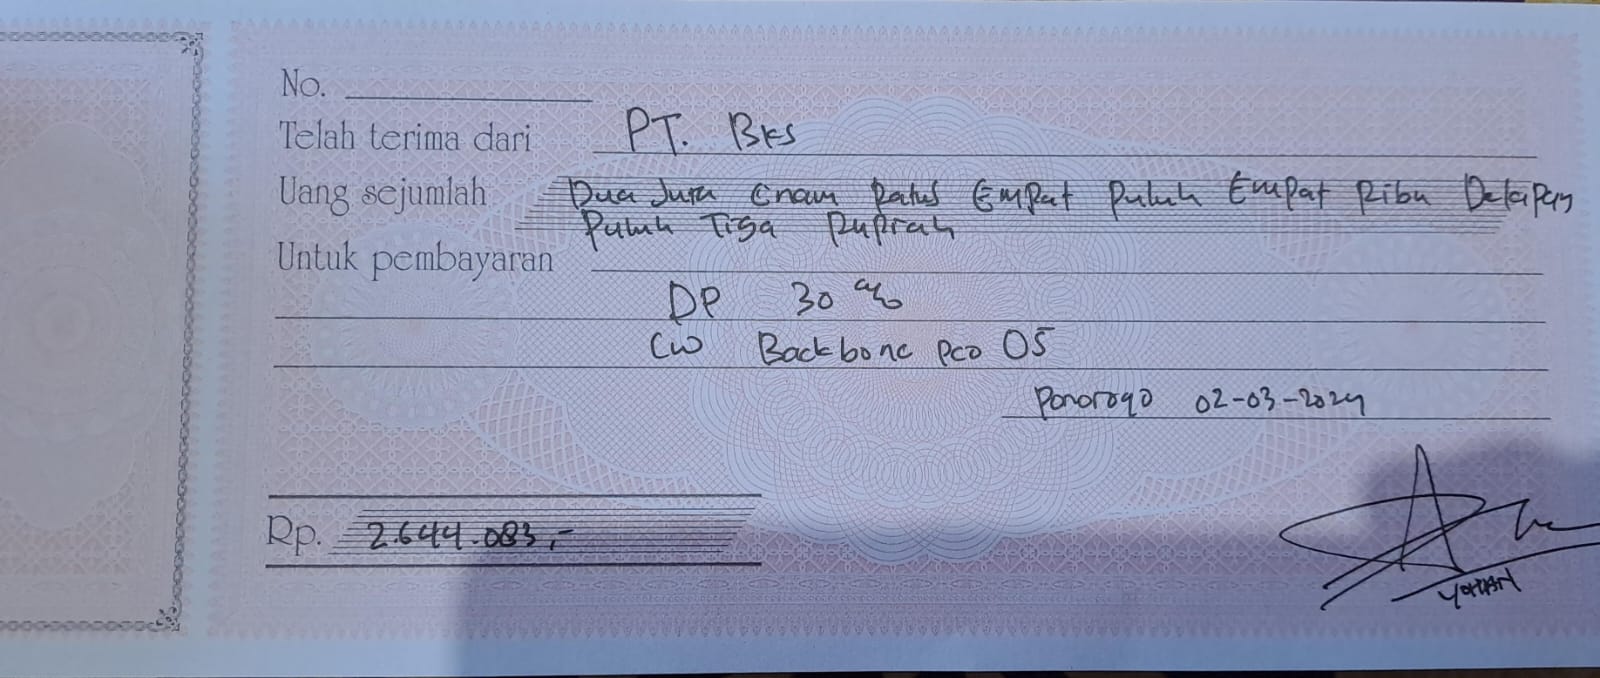 No.
Telah terima dari PT. Bks
Uang sejumlah Dua Juta Enam Ratus Empat Puluh Empat Ribu Delapan
Puluh Tiga Rupiah
Untuk pembayaran
DP 30 %
CW Backbone PCO 05
Ponorogo 02-03-2024
Rp. 2.644.083,-
YOHAN